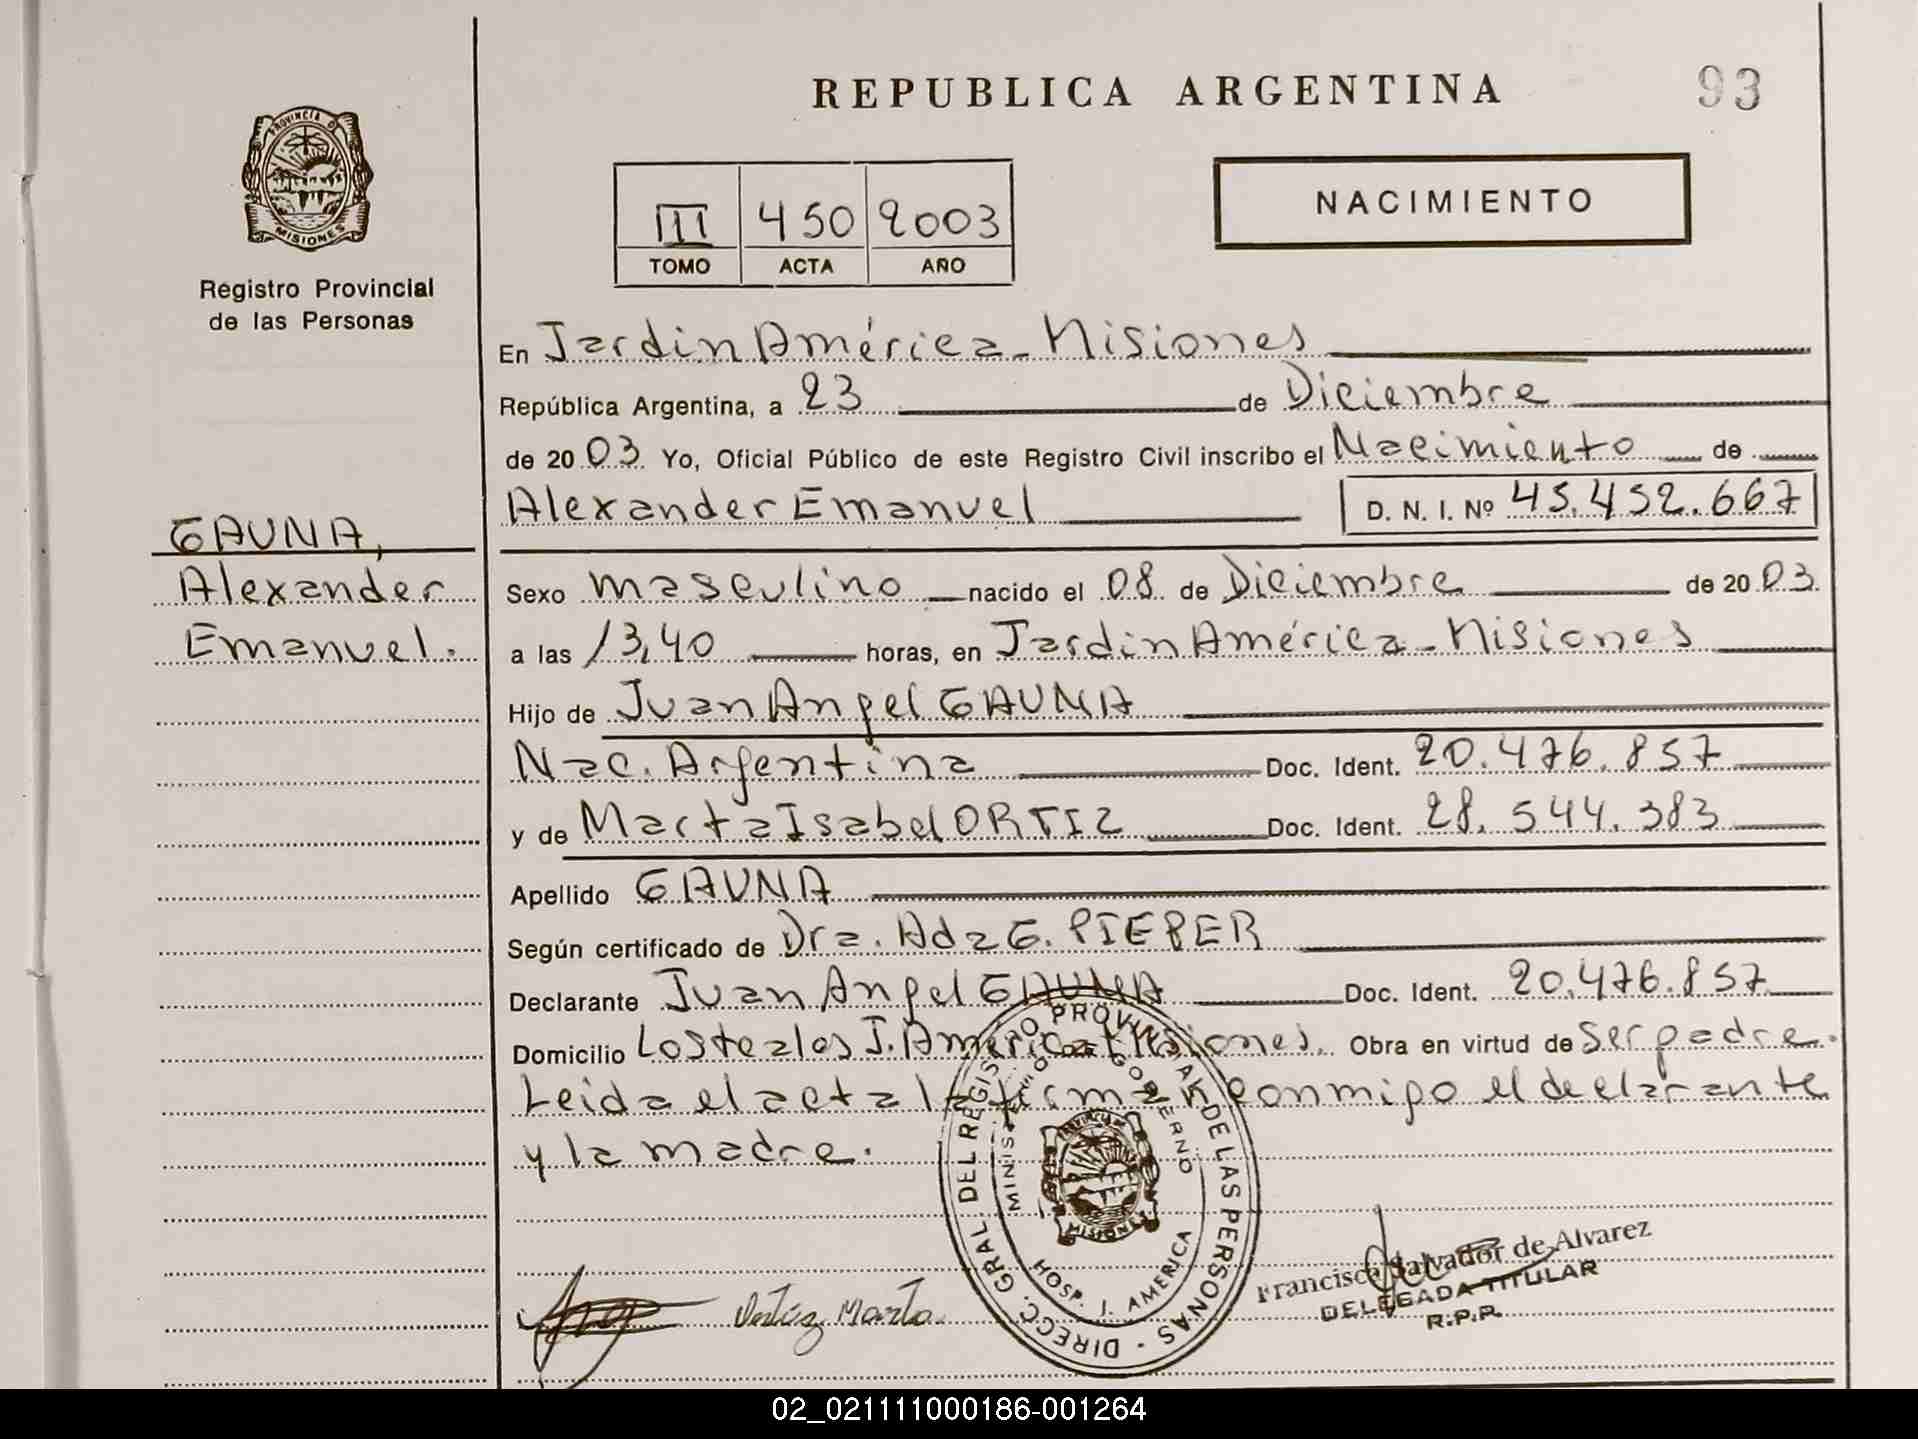 REPUBLICA ARGENTINA
93
PROVINCIA D
MISIONES
Registro Provincial
de las Personas
III 450 2003
TOMO ACTA AÑO
NACIMIENTO
En Jardin América - Misiones
República Argentina, a 23 de Diciembre
de 2003 Yo, Oficial Público de este Registro Civil inscribo el Nacimiento de
Alexander Emanuel D. N. I. Nº 45.452.667
GAUNA,
Alexander
Emanuel.
Sexo masculino nacido el 08 de Diciembre de 2003
a las 13,40 horas, en Jardin América - Misiones
Hijo de Juan Angel GAUNA
Nac. Argentina Doc. Ident. 20.476.857
y de Marta Isabel ORTIZ Doc. Ident. 28.544.383
Apellido GAUNA
Según certificado de Dra. Ada G. PIEPER
Declarante Juan Angel GAUNA Doc. Ident. 20.476.857
Domicilio Los teales J. América Misiones. Obra en virtud de ser padre.
Leida el acta la firman conmigo el declarante
y la madre.
DIRECC. GRAL DEL REGISTRO PROVINCIAL DE LAS PERSONAS
MINISTERIO DE GOBIERNO
MISIONES
HOSP. J. AMERICA
Ortiz Marta
Francisca Salvador de Alvarez
DELEGADA TITULAR
R.P.P.
02_021111000186-001264